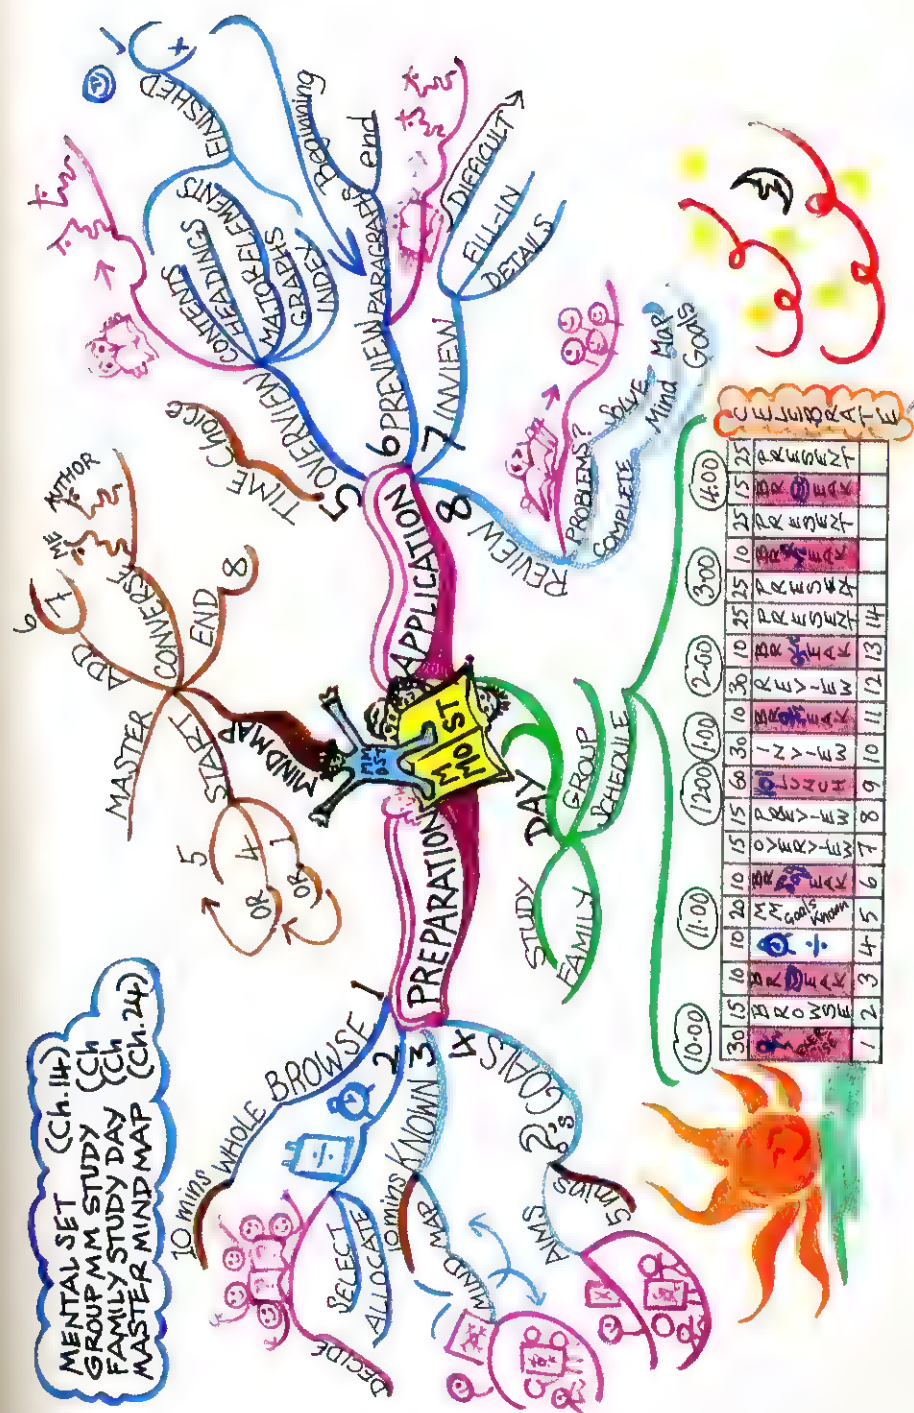 MENTAL SET (Ch.14)
GROUP MM STUDY (Ch
FAMILY STUDY DAY (Ch
MASTER MIND MAP (Ch.24)
MM
OST
M M
MO ST
PREPARATION
1
BROWSE
WHOLE
10 mins
2
SELECT
ALLOCATE
DECIDE
3
KNOWN
10 mins
MIND MAP
4
GOALS
?'s
AIMS
5 mins
APPLICATION
5
OVERVIEW
CONTENTS
HEADINGS
MAJOR ELEMENTS
GRAPHS
INDEX
FINISHED
+
TIME
Choice
6
PREVIEW
PARAGRAPHS
Beginning
end
7
INVIEW
DIFFICULT
FILL-IN
DETAILS
8
REVIEW
PROBLEMS?
SOLVE
COMPLETE
Mind Map
Goals
MIND MAP
START
5
OR
4
OR
1
MASTER
ADD
6
7
CONVERSE
ME
AUTHOR
END
8
DAY
STUDY
FAMILY
GROUP
SCHEDULE
10:00 11:00 12:00 1:00 2:00 3:00 4:00
30 15 10 10 20 10 15 15 60 30 10 30 10 25 25 10 25 15 25
EXERCISE
BROWSE
BREAK
÷
MM Goals Known
BREAK
OVERVIEW
PREVIEW
LUNCH
INVIEW
BREAK
REVIEW
BREAK
PRESENT
PRESENT
BREAK
PRESENT
BREAK
PRESENT
1 2 3 4 5 6 7 8 9 10 11 12 13 14
CELEBRATE